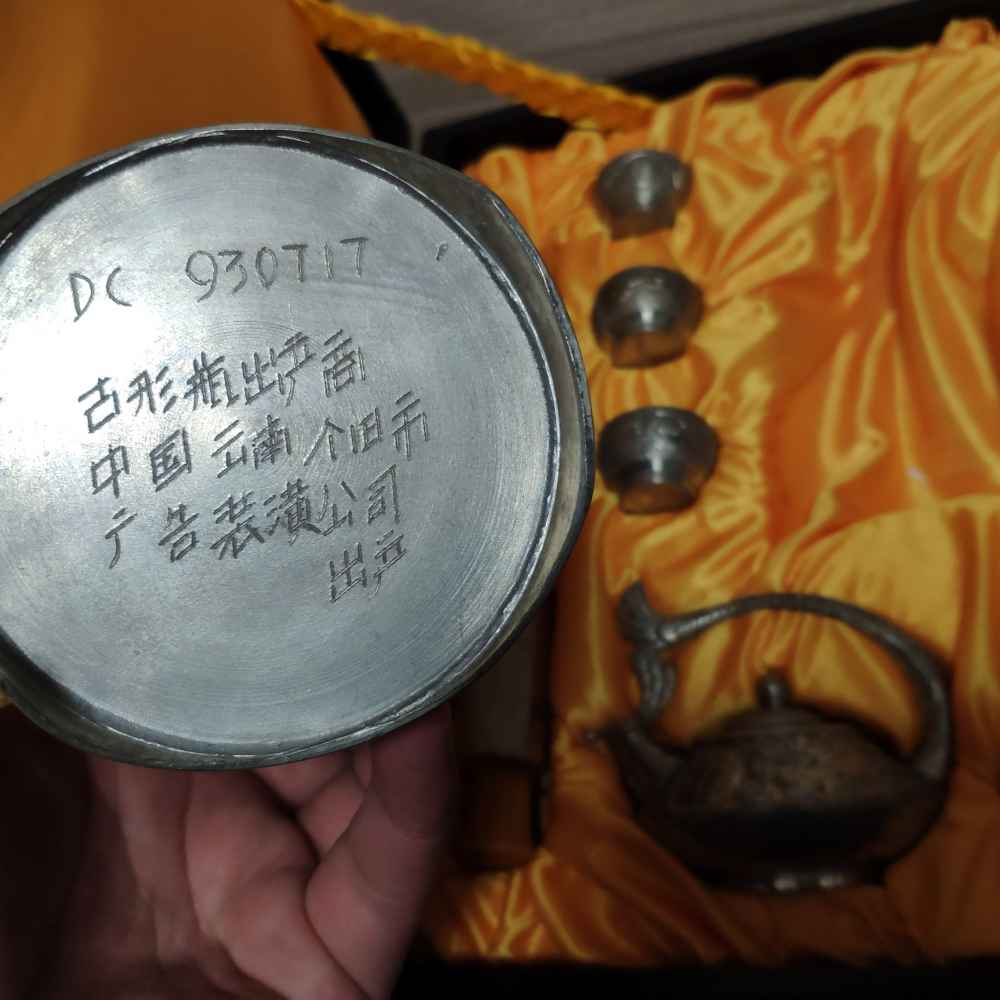 DC 930717
古形瓶出产商
中国云南个旧市
广告装潢公司
出产